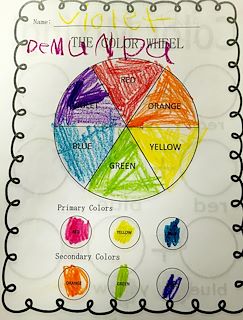 Name: Violet
THE COLOR WHEEL
RED
VIOLET ORANGE
BLUE YELLOW
GREEN
Primary Colors
RED YELLOW BLUE
Secondary Colors
ORANGE GREEN